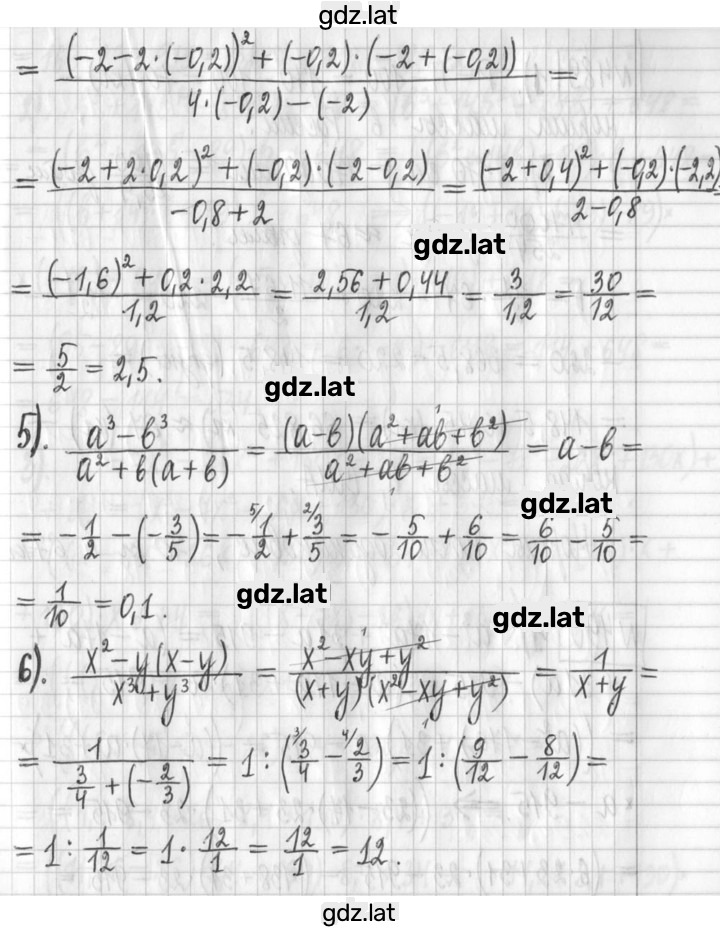 gdz.lat
= ((-2-2·(-0,2))² + (-0,2)·(-2+(-0,2)))/(4·(-0,2)-(-2)) =
= ((-2+2·0,2)² + (-0,2)·(-2-0,2))/(-0,8+2) = ((-2+0,4)² + (-0,2)·(-2,2))/(2-0,8) =
gdz.lat
= ((-1,6)² + 0,2·2,2)/1,2 = (2,56+0,44)/1,2 = 3/1,2 = 30/12 =
= 5/2 = 2,5.
gdz.lat
5). (a³-b³)/(a²+b(a+b)) = ((a-b)(a²+ab+b²))/(a²+ab+b²) = a-b =
gdz.lat
= -1/2 - (-3/5) = - ⁵/1/2 + ²/3/5 = -5/10 + 6/10 = 6/10 - 5/10 =
= 1/10 = 0,1.
gdz.lat
gdz.lat
6). (x²-y(x-y))/(x³+y³) = (x²-xy+y²)/((x+y)(x²-xy+y²)) = 1/(x+y) =
= 1/(3/4+(-2/3)) = 1:(³/3/4 - ⁴/2/3) = 1:(9/12 - 8/12) =
= 1: 1/12 = 1· 12/1 = 12/1 = 12.
gdz.lat